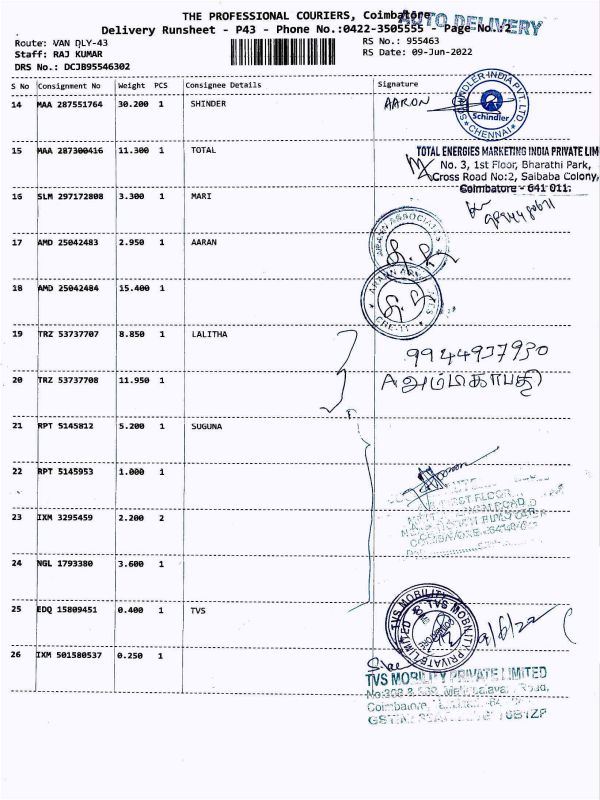 THE PROFESSIONAL COURIERS, Coimbatore
AUTO DELIVERY
Delivery Runsheet - P43 - Phone No.:0422-3505555 - Page No.:2
Route: VAN DLY-43
RS No.: 955463
Staff: RAJ KUMAR
RS Date: 09-Jun-2022
DRS No.: DCJB95546302
S No Consignment No Weight PCS Consignee Details Signature
14 MAA 287551764 30.200 1 SHINDER AARON
SCHINDLER INDIA PVT. LTD
Schindler
CHENNAI
15 MAA 287300416 11.300 1 TOTAL
TOTAL ENERGIES MARKETING INDIA PRIVATE LIM
No. 3, 1st Floor, Bharathi Park,
Cross Road No:2, Saibaba Colony,
Coimbatore - 641 011.
16 SLM 297172808 3.300 1 MARI
17 AMD 25042483 2.950 1 AARAN
ASSOCIATES
18 AMD 25042484 15.400 1
19 TRZ 53737707 8.850 1 LALITHA
9944937930
20 TRZ 53737708 11.950 1
21 RPT 5145812 5.200 1 SUGUNA
22 RPT 5145953 1.000 1
FIRST FLOOR
23 IXM 3295459 2.200 2
24 NGL 1793380 3.600 1
25 EDQ 15809451 0.400 1 TVS
TVS MOBILITY PRIVATE LIMITED
9/6/22
26 IXM 501580537 0.250 1
TVS MOBILITY PRIVATE LIMITED
Road,
Coimbatore,